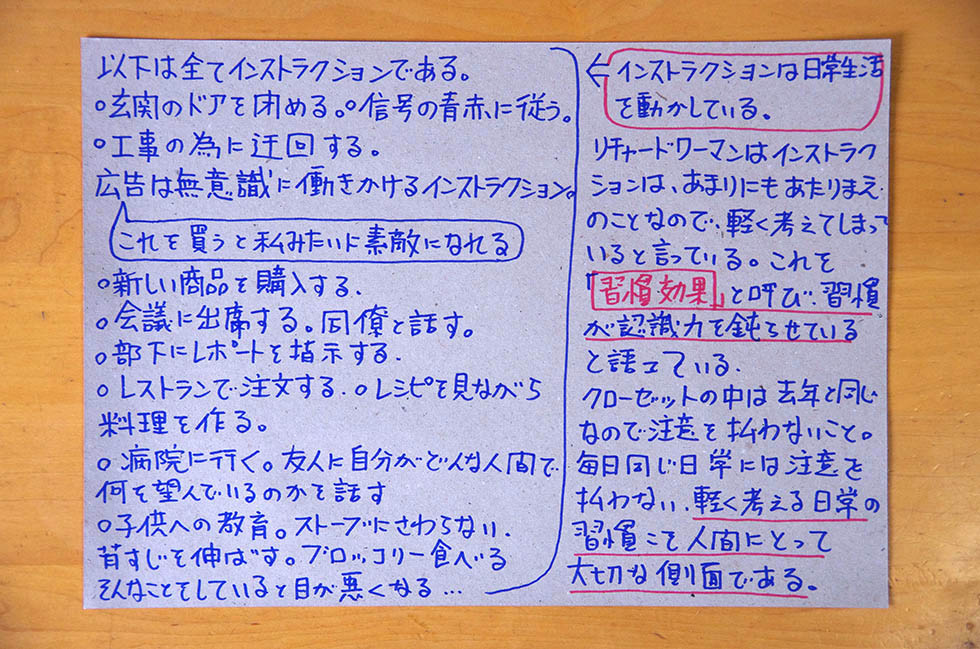 以下は全てインストラクションである。
○玄関のドアを閉める。○信号の青赤に従う。
○工事の為に迂回する。
広告は無意識に働きかけるインストラクション。
これを買うと私みたいに素敵になれる
○新しい商品を購入する.
○会議に出席する。同僚と話す。
○部下にレポートを指示する.
○レストランで注文する.○レシピを見ながら
料理を作る。
○病院に行く。友人に自分がどんな人間で
何を望んでいるのかを話す
○子供への教育。ストーブにさわらない.
背すじを伸ばす。ブロッコリー食べる
そんなことをしていると目が悪くなる…
←インストラクションは日常生活
を動かしている。
リチャードワーマンはインストラク
ションは、あまりにもあたりまえ
のことなので、軽く考えてしまって
いると言っている。これを
「習慣効果」と呼び、習慣
が認識力を鈍らせている
と語っている.
クローゼットの中は去年と同じ
なので注意を払わないこと。
毎日同じ日常には注意を
払わない.軽く考える日常の
習慣こそ人間にとって
大切な側面である。